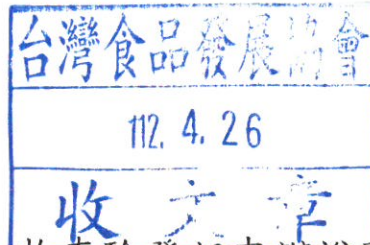 台灣食品發展協會
112. 4. 26
收文章